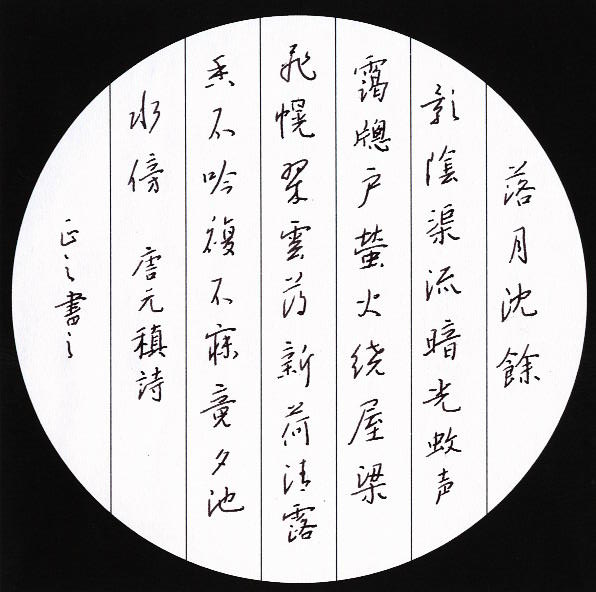 落月沈餘
影陰渠流暗光蚊声
靄牕户螢火绕屋梁
飛幌翠雲薄新荷清露
香不吟複不寐竟夕池
水傍 唐元稹詩
正之書之